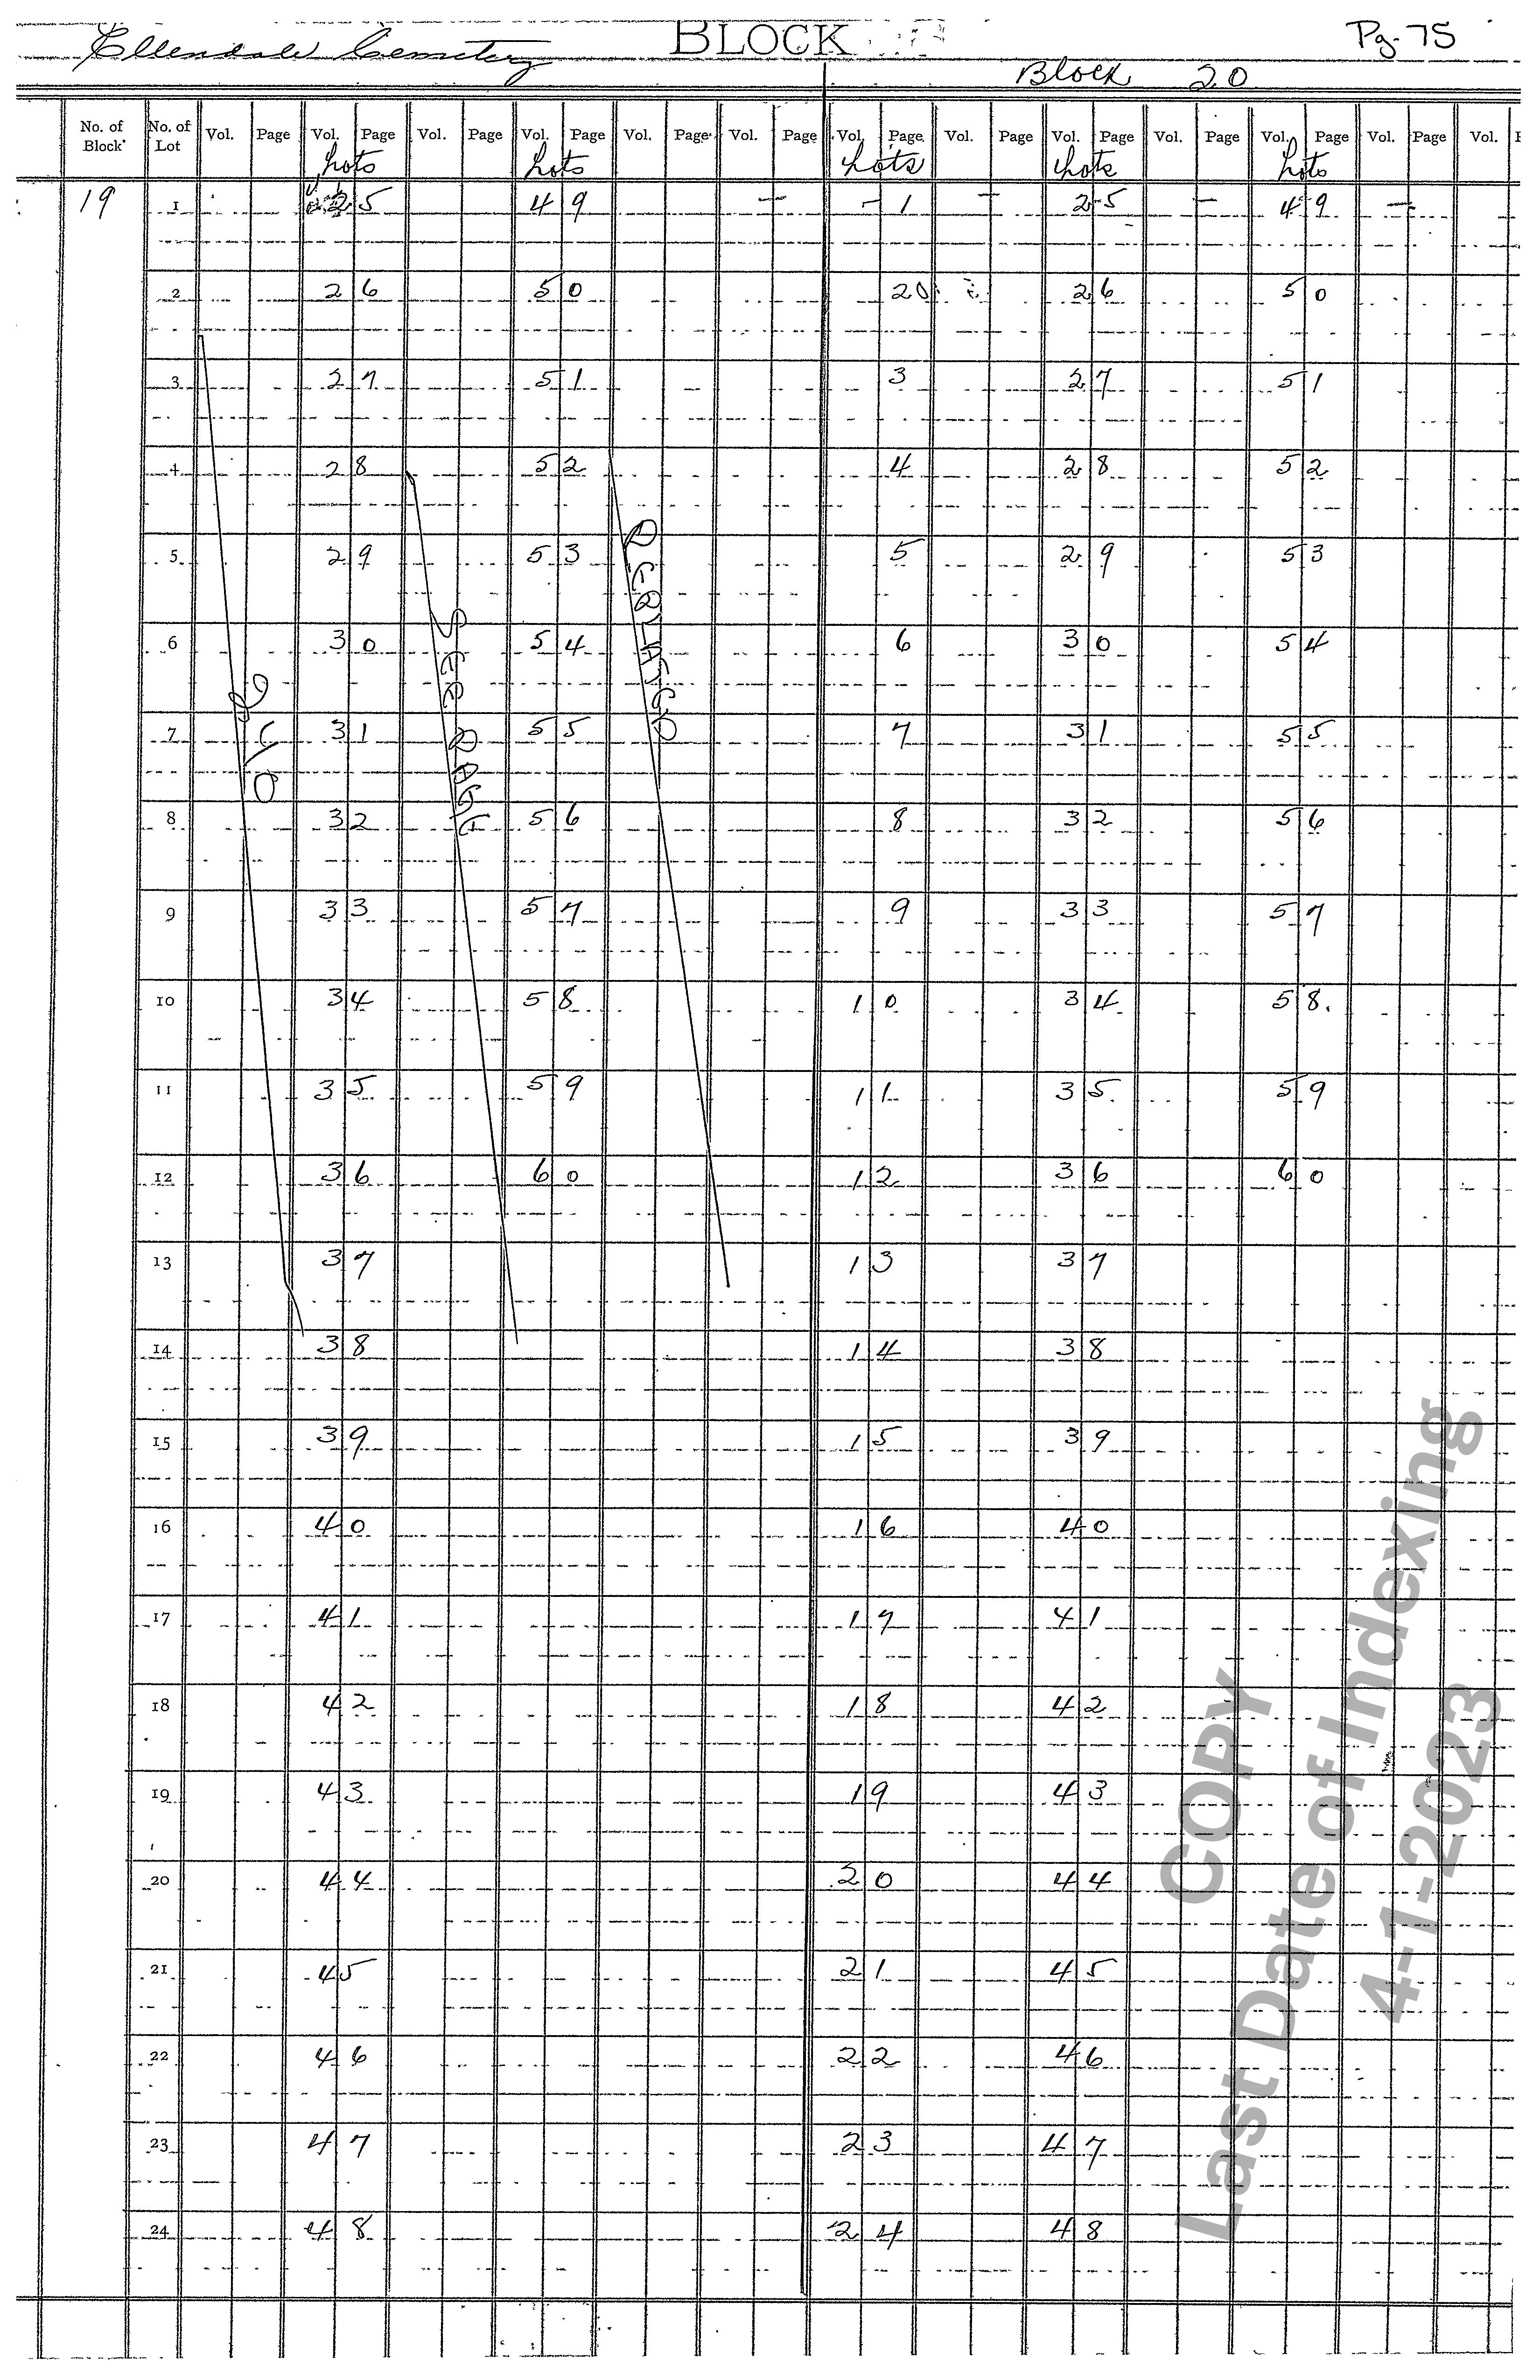 Ellendale Cemetery BLOCK Pg-75
Block 20
No. of Block No. of Lot Vol. Page Vol. Page Vol. Page Vol. Page Vol. Page Vol. Page Vol. Page Vol. Page Vol. Page Vol. Page Vol. Page Vol. Page Vol.
Lots Lots Lots Lots Lots
19 1 25 49 — - 1 — 25 — 49 —
2 26 50 20 26 50
3 27 51 3 27 51
4 28 52 4 28 52
5 29 53 5 29 53
6 30 54 6 30 54
7 31 55 7 31 55
8 32 56 8 32 56
9 33 57 9 33 57
10 34 58 10 34 58.
11 35 59 11 35 59
12 36 60 12 36 60
13 37 13 37
14 38 14 38
15 39 15 39
16 40 16 40
17 41 17 41
18 42 18 42
19 43 19 43
20 44 20 44
21 45 21 45
22 46 22 46
23 47 23 47
24 48 24 48
COPY
Last Date of Indexing
4-1-2023